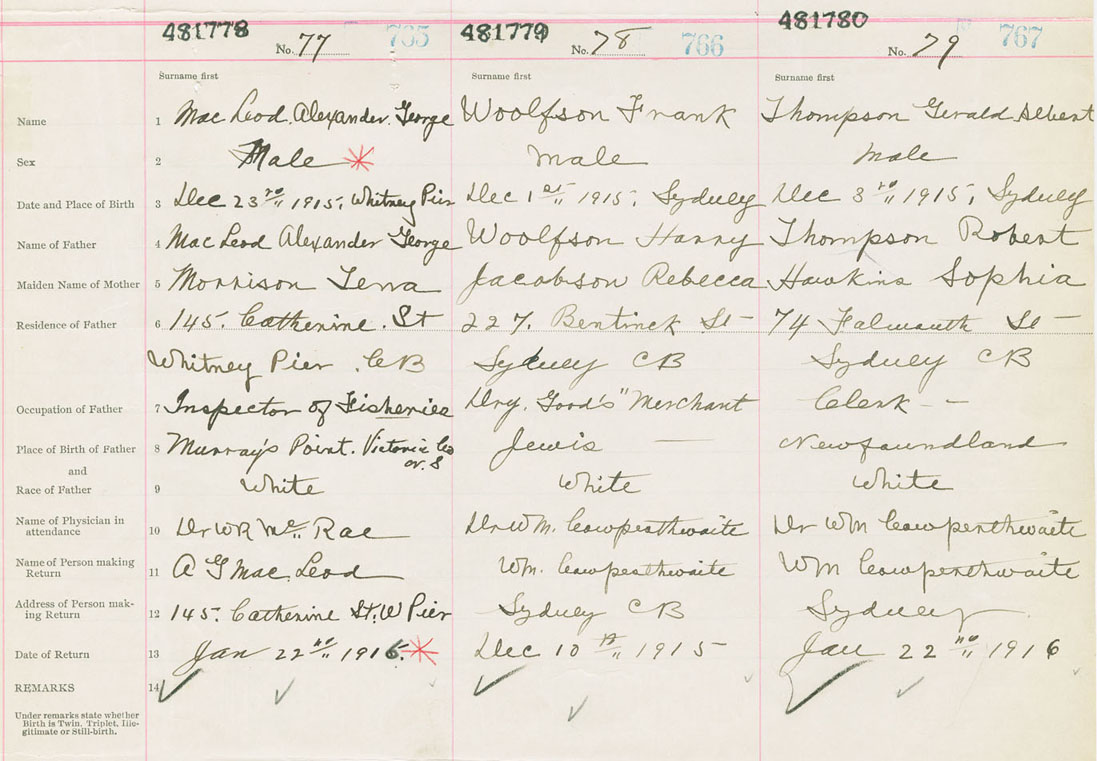 481778 481779 481780
No. 77 765 No. 78 766 No. 79 767
Surname first Surname first Surname first
Name 1 Mac Leod, Alexander George Woolfson Frank Thompson Gerald Albert
Sex 2 Male Male Male
Date and Place of Birth 3 Dec 23rd 1915, Whitney Pier Dec 1st 1915, Sydney Dec 3rd 1915, Sydney
Name of Father 4 Mac Leod Alexander George Woolfson Harry Thompson Robert
Maiden Name of Mother 5 Morrison Jacobson Rebecca Hawkins Sophia
Residence of Father 6 145. Catherine. St 227. Bentinck St 74 Falmouth St
Whitney Pier. CB Sydney CB Sydney CB
Occupation of Father 7 Inspector of Fisheries Dry Good's" Merchant Clerk
Place of Birth of Father 8 Murray's Point. Victoria Co Jewis Newfoundland
and N. S
Race of Father 9 White White White
Name of Physician in
attendance 10 Dr WR Mc Rae Dr Wm. Cowperthwaite Dr Wm Cowperthwaite
Name of Person making
Return 11 A G Mac Leod Wm. Cowperthwaite Wm Cowperthwaite
Address of Person mak-
ing Return 12 145. Catherine St. W Pier Sydney CB Sydney
Date of Return 13 Jan 22nd 1916. Dec 10th 1915 Jan 22nd 1916
REMARKS 14
Under remarks state whether
Birth is Twin, Triplet, Ille-
gitimate or Still-birth.